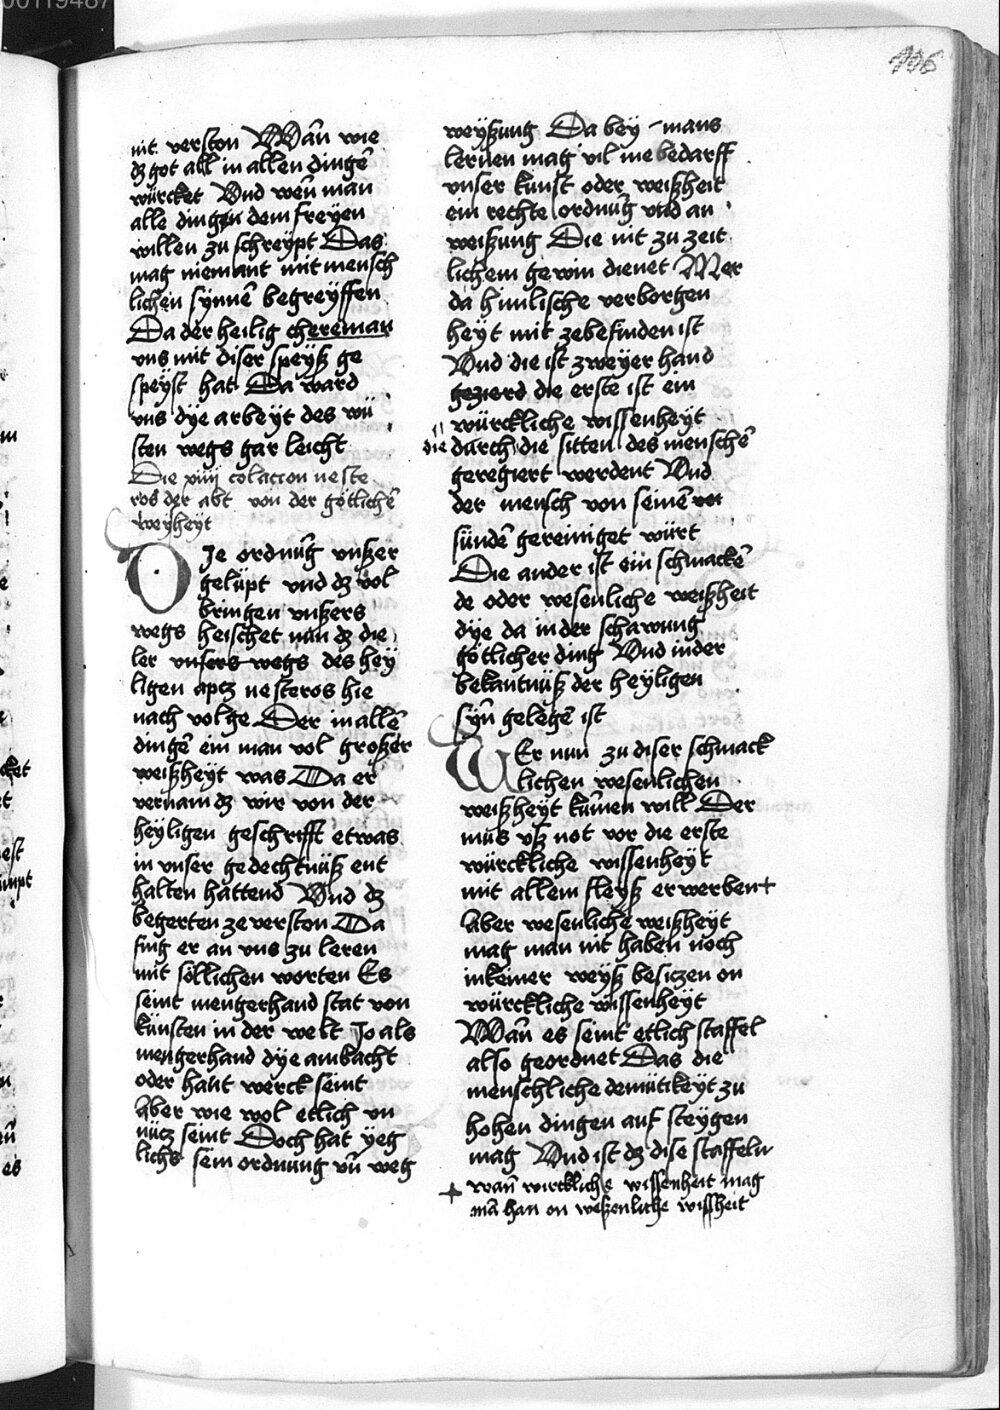 106
nit verston Wan̄ wie
dz got all in allen dingē
würcket Vnd wen̄ man
alle dingen dem freyen
willen zu schreypt Das
mag niemant mit mensch
lichen synnē begreyffen
Da der heilig chereman
vns mit diser speyß ge
speyst hat Da ward
vns dye arbeyt des wü
sten wegs gar leicht
Die xiiij colacion neste
ros der abt von der götlichē
weyheyt
Die ordnūg vnßer
gelüpt vnd dz vol
bringen vnßers
wegs heischet nun dz die
ler vnsers wegs des hey
ligen aptz nesteros hie
nach volge Der in allē
dingē ein man vol großer
weißheyt was Da er
vernam dz wir von der
heyligen geschrifft etwas
in vnser gedechtnüß ent
halten hattend Vnd dz
begerten ze verston Da
fing er an vns zu leren
mit söllichen worten Es
seint mengerhand stat von
künsten in der welt Jo als
mengerhand dye ambacht
oder hant werck seint
aber wie wol etlich vn
nücz seint Doch hat yeg
lichs sein ordnung vn̄ weg
weyßung Da bey mans
lernen mag vil me bedarff
vnser kunst oder weißheit
ein rechte ordnūg vnd an
weißung Die nit zu zeit
lichem gewin dienet Mer
da himlische verborgen
heyt mit ze befinden ist
Vnd die ist zweyer hand
gezierd die erste ist ein
würckliche wissenheyt
die durch die sitten des menschē
geregiert werdent Vnd
der mensch von seinē
sündē gereiniget würt
Die ander ist ein schmackē
de oder wesenliche weißheit
dye da in der schawung
götlicher ding Vnd in der
bekantnüß der heyligen
syn̄ gelegē ist
WEr nun zu diser schmack
lichen wesenlichen
weißheyt kūmen will Der
mus vß not vor die erste
würckliche wissenheyt
mit allem fleyß erwerben+
aber wesenliche weißheyt
mag man nit haben noch
in keiner weyß besiczen on
würckliche wissenheyt
Wan̄ es seint etlich staffel
also geordnet Das die
menschliche demütikeyt zu
hohen dingen auf steygen
mag Vnd ist dz dise staffeln
+ wan̄ wirckliche wissenheit mag
mā han on weßenliche wissheit